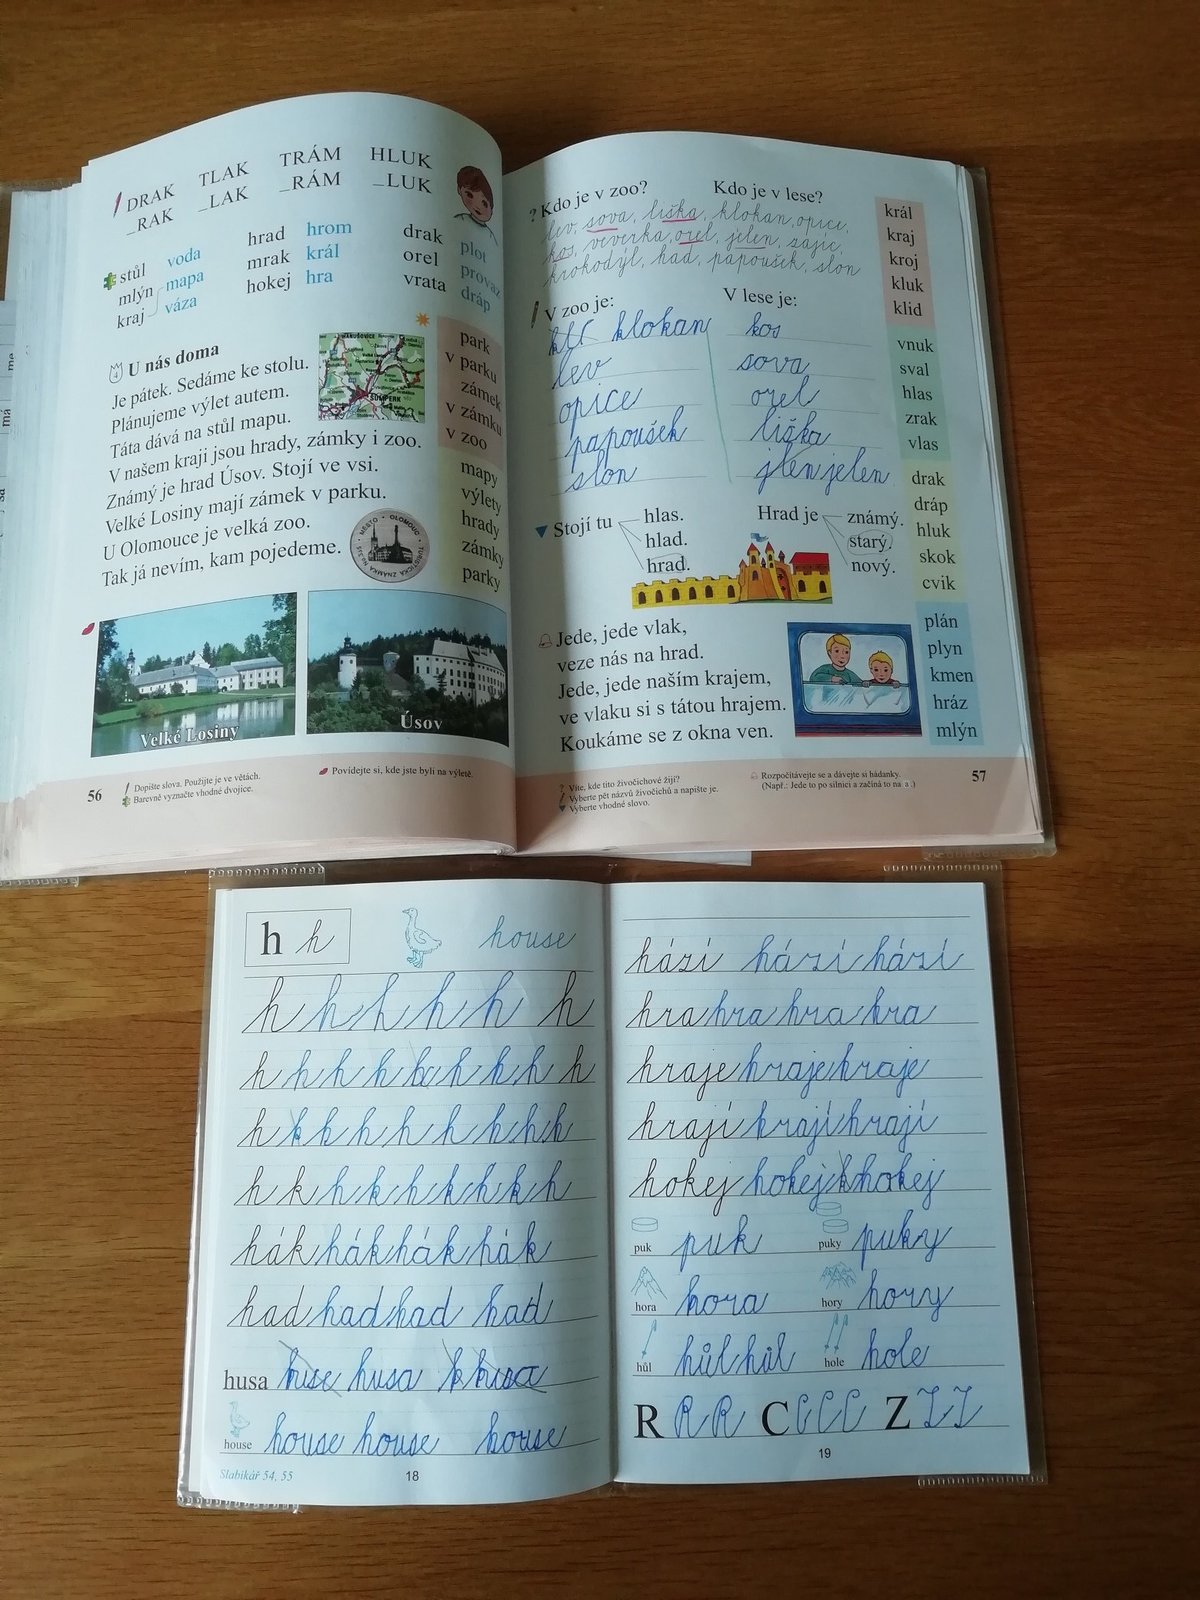 DRAK TLAK TRÁM HLUK
_RAK _LAK _RÁM _LUK
stůl voda hrad hrom drak plot
mlýn mapa mrak král orel provaz
kraj váza hokej hra vrata dráp
U nás doma
Je pátek. Sedáme ke stolu.
Plánujeme výlet autem.
Táta dává na stůl mapu.
V našem kraji jsou hrady, zámky i zoo.
Známý je hrad Úsov. Stojí ve vsi.
Velké Losiny mají zámek v parku.
U Olomouce je velká zoo.
Tak já nevím, kam pojedeme.
ŠUMPERK
MĚSTO OLOMOUC
TURISTICKÁ ZNÁMKA
park
v parku
zámek
v zámku
v zoo
mapy
výlety
hrady
zámky
parky
Velké Losiny
Úsov
56
Dopište slova. Použijte je ve větách.
Barevně vyznačte vhodné dvojice.
Povídejte si, kde jste byli na výletě.
? Kdo je v zoo? Kdo je v lese?
lev, sova, liška, klokan, opice,
kos, veverka, orel, jelen, zajíc,
krokodýl, had, papoušek, slon
V zoo je: V lese je:
klokan kos
lev sova
opice orel
papoušek liška
slon jlen jelen
Stojí tu hlas. Hrad je známý.
hlad. starý.
hrad. nový.
Jede, jede vlak,
veze nás na hrad.
Jede, jede naším krajem,
ve vlaku si s tátou hrajem.
Koukáme se z okna ven.
král
kraj
kroj
kluk
klid
vnuk
sval
hlas
zrak
vlas
drak
dráp
hluk
skok
cvik
plán
plyn
kmen
hráz
mlýn
? Víte, kde tito živočichové žijí?
Vyberte pět názvů živočichů a napište je.
Vyberte vhodné slovo.
Rozpočítávejte se a dávejte si hádanky.
(Např.: Jede to po silnici a začíná to na a.)
57
h h house
h h h h h h
h h h h h h h h h
h k k h h h h h k
h k h k h k h k h
hák hák hák hák
had had had had
husa huse husa k husa
house house house house
Slabikář 54, 55
18
hází hází hází
hra hra hra hra
hraje hraje hraje
hrají hrají hrají
hokej hokej hokej
puk puk puky puky
hora hora hory hory
hůl hůl hůl hole hole
R R R C C C C Z Z Z
19